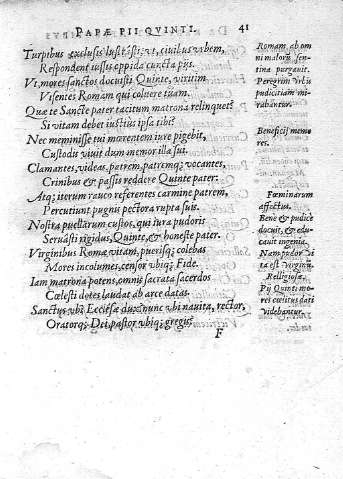 PAPÆ PII QVINTI. 41
Turpibus exclusis lustrasti, vt, ciuibus vrbem,
Respondent iussis oppida cuncta pijs.
Vt mores sanctos docuisti Quinte, virûm
Visentes Romam qui coluere tuam.
Qua te Sancte pater tacitum matrona relinquet?
Si vitam debet iustius ipsa tibi?
Nec meminisse tui morentem iure pigebit,
Custodis viuit dum memor illa sui.
Clamantes, videas, patrem, patremq; vocantes,
Crinibus & passis reddere Quinte pater.
Atq; iterum rauco referentes carmine patrem,
Percutiunt pugnis pectora rupta suis.
Nostra puellarum custos, qui iura pudoris
Seruasti rigidus, Quinte, & honeste pater.
Virginibus Romæ vitam, puerisq; colebas
Mores incolumes, censor vbiq; Fide.
Iam matrona potens, omnis sacrata sacerdos
Cœlesti dotes laudat ab arce datas.
Sanctus vbi Ecclesæ dux nunc vbi nauita, rector,
Oratorq; Dei, pastor vbiq; gregis?
F
Romam ab om
ni malorũ sen
tina purgauit.
Peregrini Vrbis
pudicitiam mi-
rabantur.
Beneficij memo
res.
Fœminarum
affectus.
Bene & pudice
docuit, & edu-
cauit ingenia.
Nam pudor vi
ta est virginũ.
Religiosæ.
Pij Quinti mo-
res cœlitus dati
videbantur.